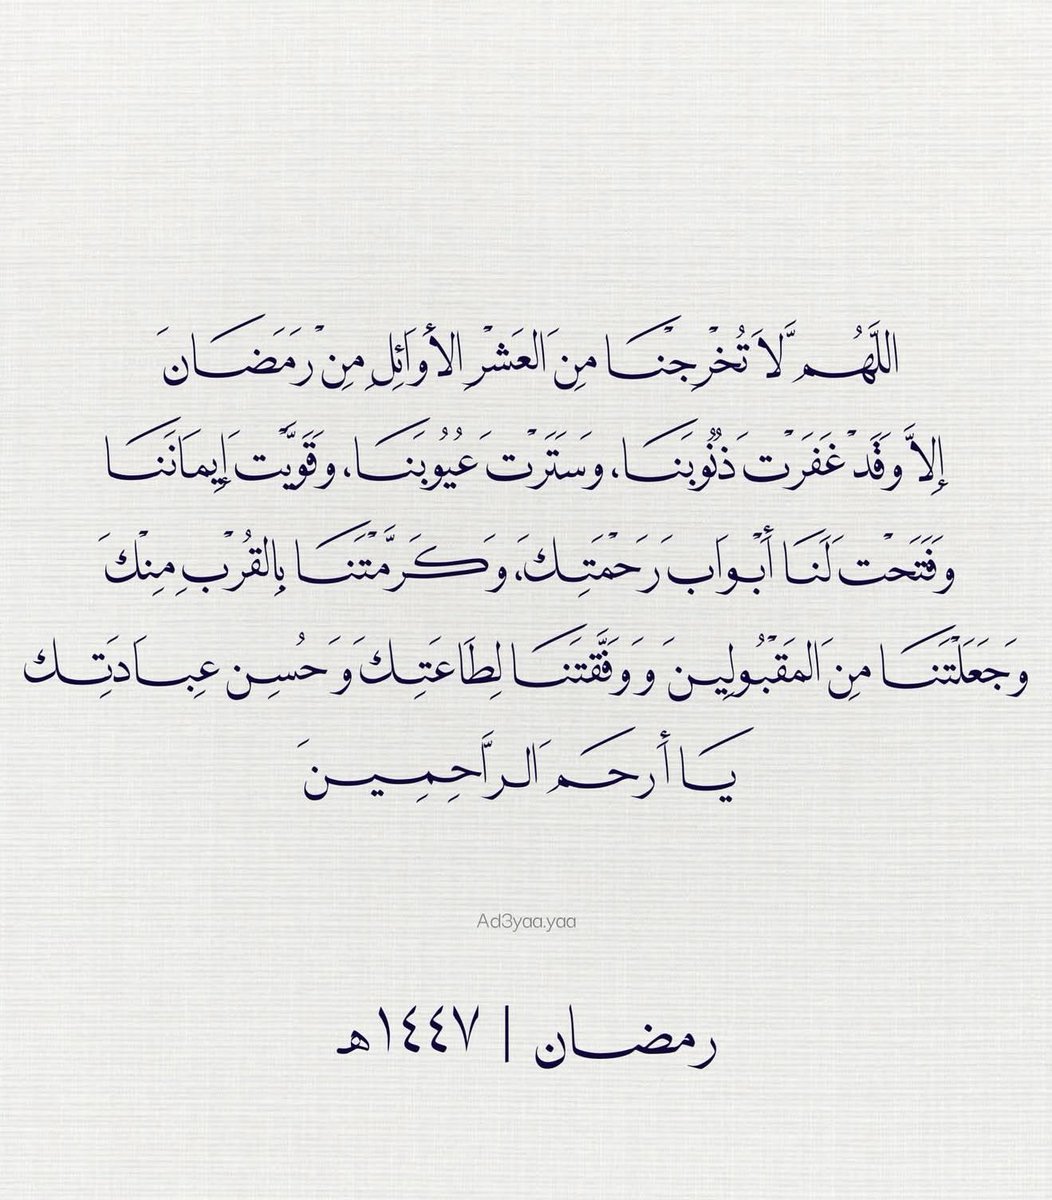 اللَّهُم لَّا تُخْرِجْنَا مِنَ العَشْرِ الأَوَائِلِ مِنْ رَمَضَانَ
إِلاَّ وَقَدْ غَفَرْتَ ذُنُوبَنَا، وَسَتَرْتَ عُيُوبَنَا، وَقَوَّيْتَ إِيمَانَنَا
وَفَتَحْتَ لَنَا أَبْوَابَ رَحْمَتِكَ، وَكَرَّمْتَنَا بِالقُرْبِ مِنْكَ
وَجَعَلْتَنَا مِنَ المَقْبُولِينَ وَوَفَّقْتَنَا لِطَاعَتِكَ وَحُسِن عِبَادَتِك
يَا أَرحَمَ الرَّاحِمِينَ
Ad3yaa.yaa
رمضان | ١٤٤٧هـ